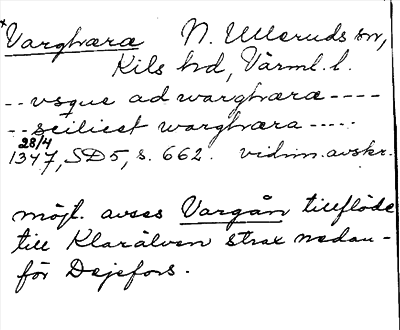 *Varghæræ N. Ulleruds sn,
Kils hd, Värml. l.
-- vsque ad warghæræ ----
-- sciliest warghæra -----
28/4
1347, SD5, s. 662. vidim. avskr.
möjl. avses Vargån tillflöde
till Klarälven strax nedan-
för Dejefors.